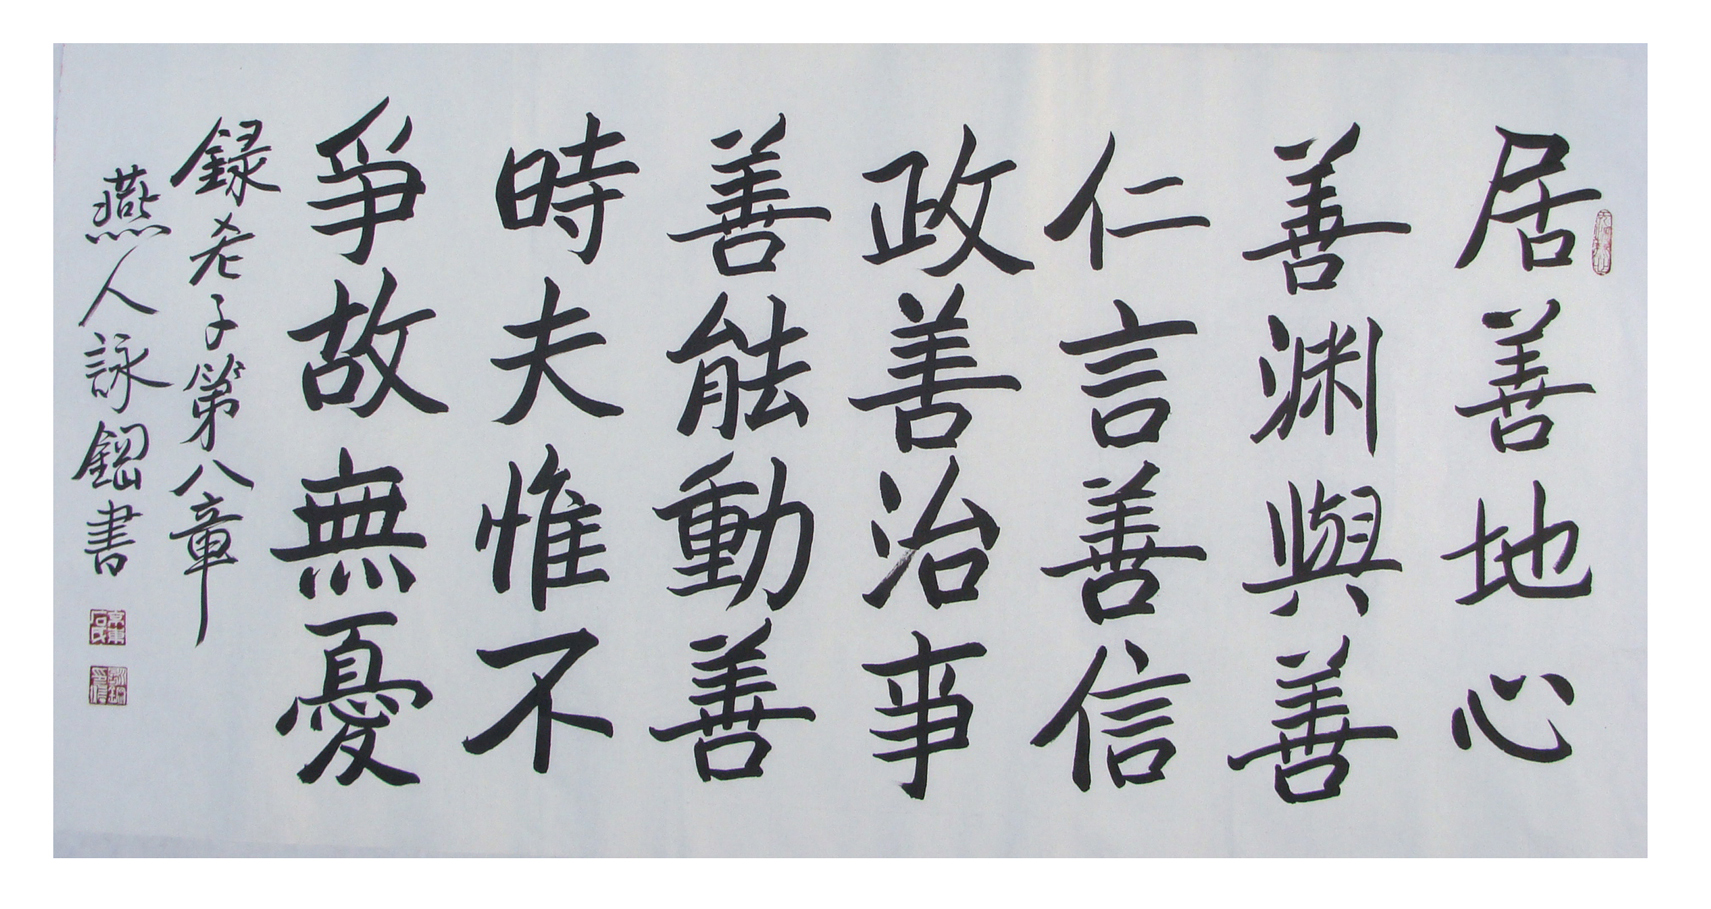 居善地心
善渊與善
仁言善信
政善治事
善能動善
時夫惟不
爭故無憂
録老子第八章
燕人詠鐧書